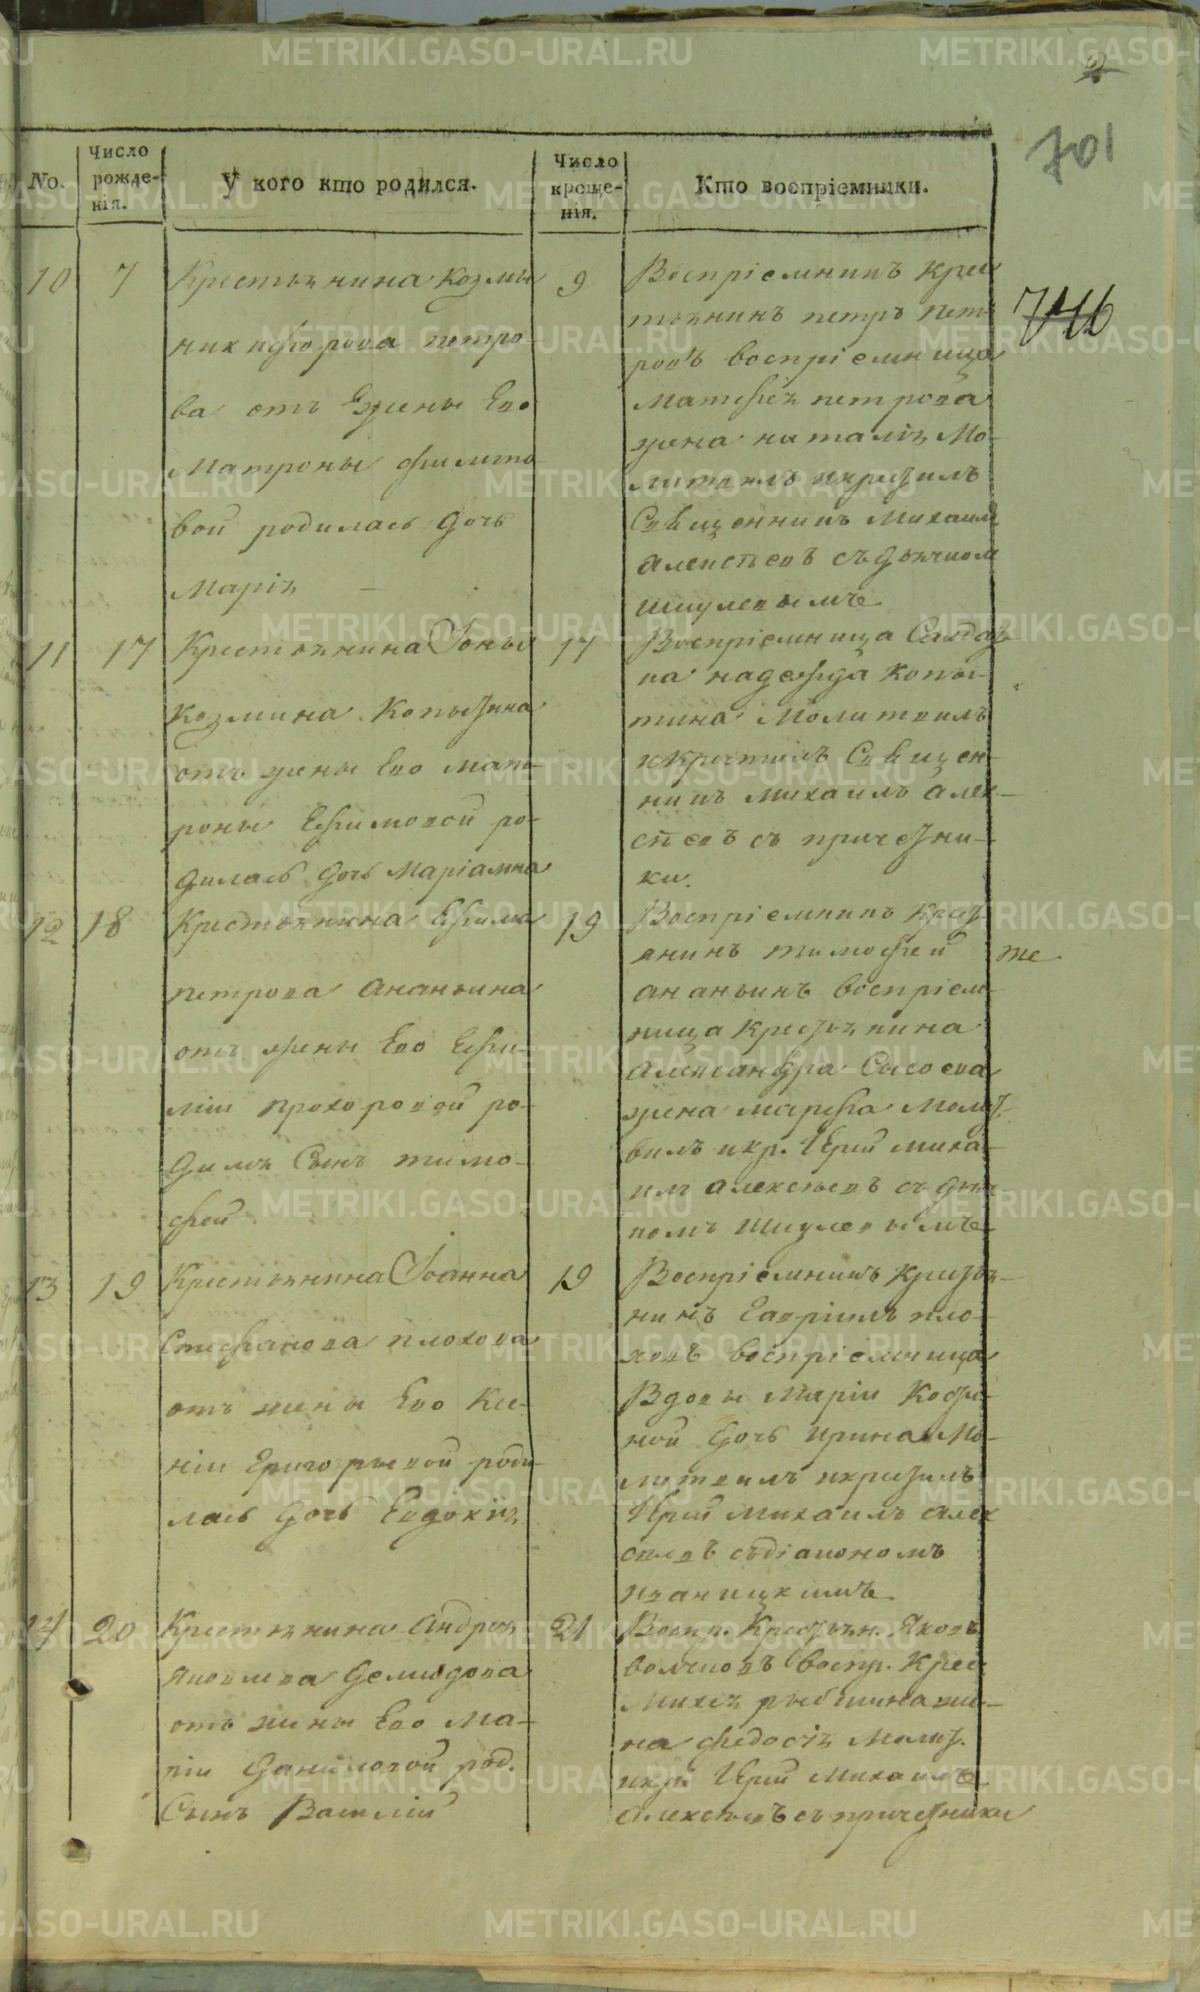 2
701
No.
Число рожде-нія.
У кого кто родился.
Число креще-нія.
Кто воспріемники.
746
10
7
Крестьянина Козмы
Никифорова петро-
ва отъ жены Его
Матроны филипо
вой родилась дочь
Марія
9
Воспріемникъ крес
тьянинъ петръ пет-
ровъ воспріемница
Матфея петрова
жена наталія Мо-
литвилъ икрестилъ
Священникъ Михаилъ
алексѣевъ съ дьячком
шкулевымъ
11
17
Крестьянина Іоны
Козмина Копытина
отъ жены Его мат-
роны Ефимовой ро-
дилась дочь Маріамна
17
Воспріемница Солдат
ка надежда Копы-
тина Молитвилъ
икрестилъ Священ-
никъ михаилъ алек-
сѣевъ съ причетни-
ки.
12
18
Крестьянина Ефима
петрова ананьина
отъ жены Его Ефи-
міи прохоровой ро-
дился Сынъ тимо-
фей
19
Воспріемникъ крест
янинъ тимофей
же
ананьинъ воспріем-
ница крестьянина
александра Сысоева
жена марфа молит
вилъ икр. Іерей миха-
илъ алексѣевъ съ дьяч
комъ шкулевымъ
13
19
Крестьянина Іоанна
Стефанова плохова
отъ жены Его Ксе-
ніи Григорьевой роди-
лась дочь Евдокія
19
Воспріемникъ крестья-
нинъ Гавріилъ пло-
ховъ воспріемница
Вдовы Маріи
ной дочь ирина Мо-
литвилъ икрестилъ
Іерей михаилъ алек
сѣевъ съдіакономъ
14
20
Крестьянина андрея
яковлева демидова
отъ жены Его Ма-
ріи даниловой род.
Сынъ Василій
21
Воспр. Крестьян. Яковъ
волковъ воспр. Крес
жи-
на федосія Молит.
икр. Іерей михаилъ
алексѣевъ съ причетники
METRIKI.GASO-URAL.RU